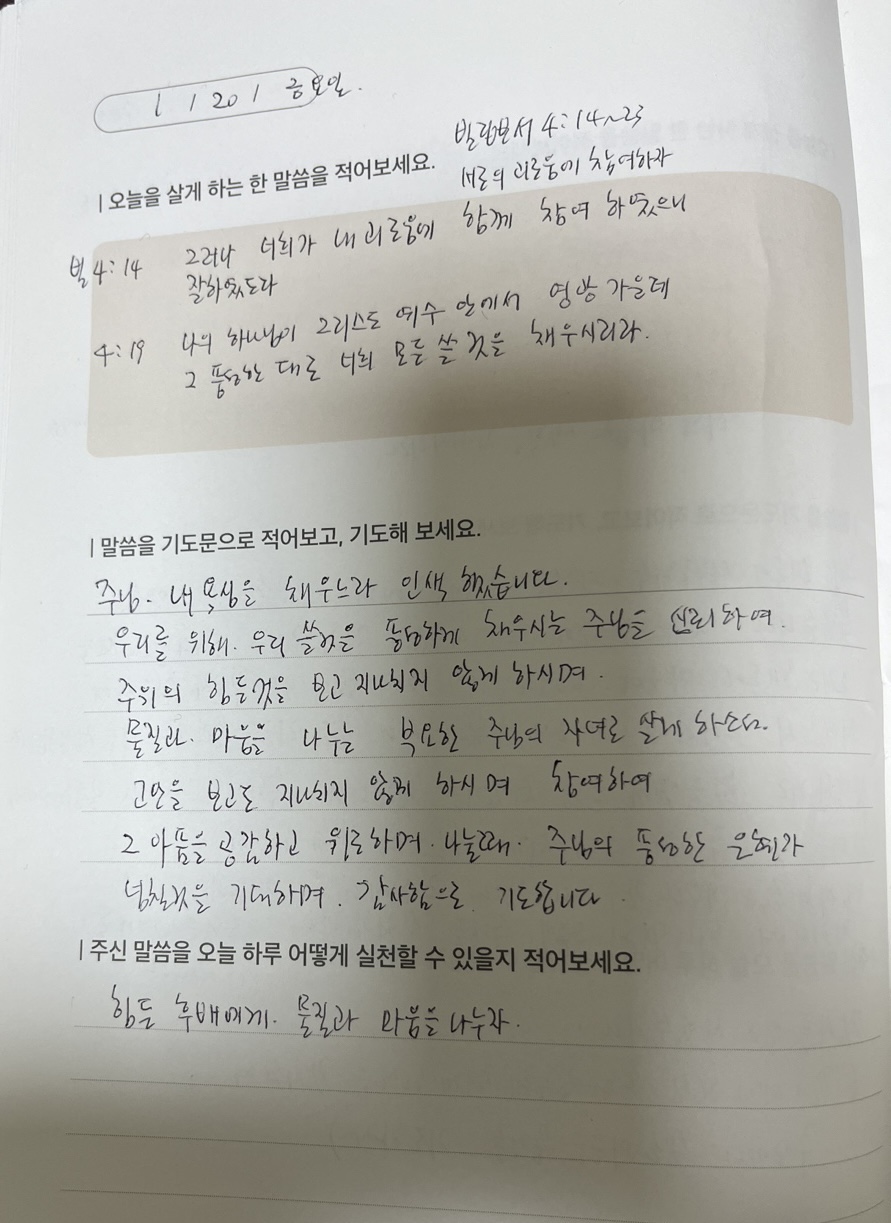 1 / 20 / 금요일.
빌립보서 4:14~23
| 오늘을 살게 하는 한 말씀을 적어보세요.
서로의 괴로움에 참여하자
빌4:14 그러나 너희가 내 괴로움에 함께 참여 하였으니
잘하였도다
4:19 나의 하나님이 그리스도 예수 안에서 영광 가운데
그 풍성한 대로 너희 모든 쓸 것을 채우시리라.
| 말씀을 기도문으로 적어보고, 기도해 보세요.
주님. 내 욕심을 채우느라 인색 했습니다.
우리를 위해. 우리 쓸것을 풍성하게 채우시는 주님을 신뢰하여.
주위의 힘든것을 보고 지나치지 않게 하시며.
물질과. 마음을 나누는 부요한 주님의 자녀로 살게 하소서.
고난을 보고도 지나치지 않게 하시며 참여하여
그 아픔을 공감하고 위로하며. 나눌때. 주님의 풍성한 은혜가
넘칠것을 기대하며. 감사함으로 기도합니다.
| 주신 말씀을 오늘 하루 어떻게 실천할 수 있을지 적어보세요.
힘든 후배에게. 물질과 마음을 나누자.